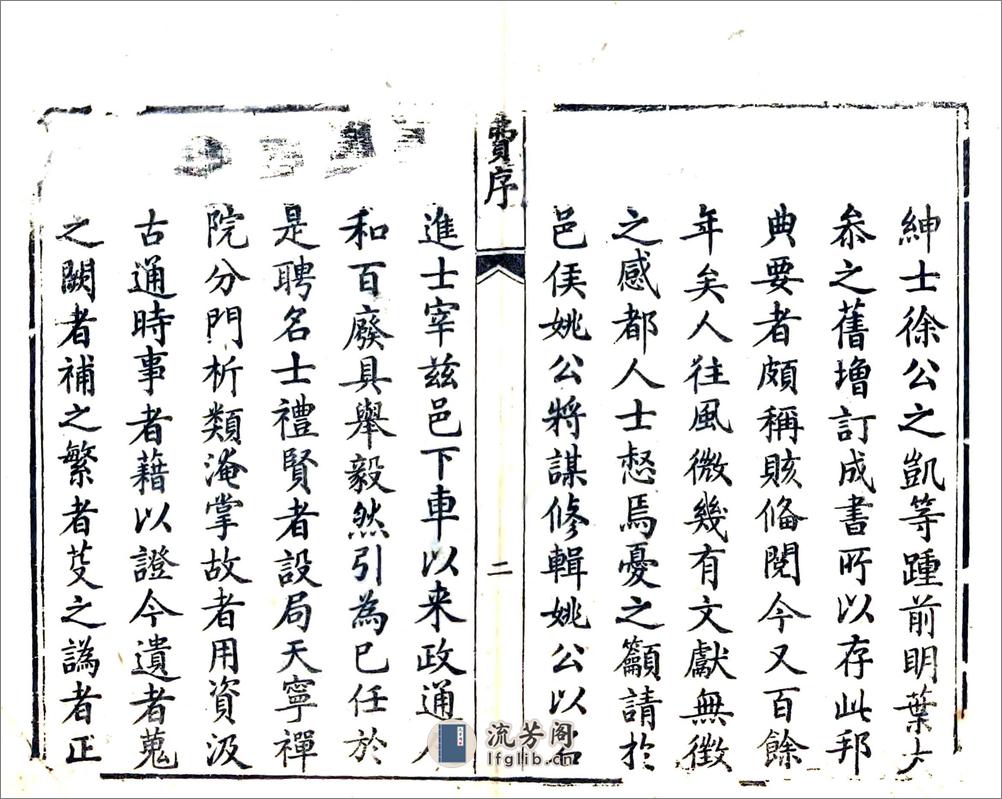 紳士徐公之凱等踵前明葉大
叅之舊增訂成書所以存此邦
典要者頗稱賅備閱今又百餘
年矣人往風微幾有文獻無徵
之感都人士惄焉憂之籲請於
邑侯姚公將謀修輯姚公以名
費序
二
進士宰茲邑下車以来政通人
和百廢具舉毅然引為已任於
是聘名士禮賢者設局天寧禪
院分門析類淹掌故者用資汲
古通時事者藉以證今遺者蒐
之闕者補之繁者芟之譌者正
流芳阁
lfglib.cn